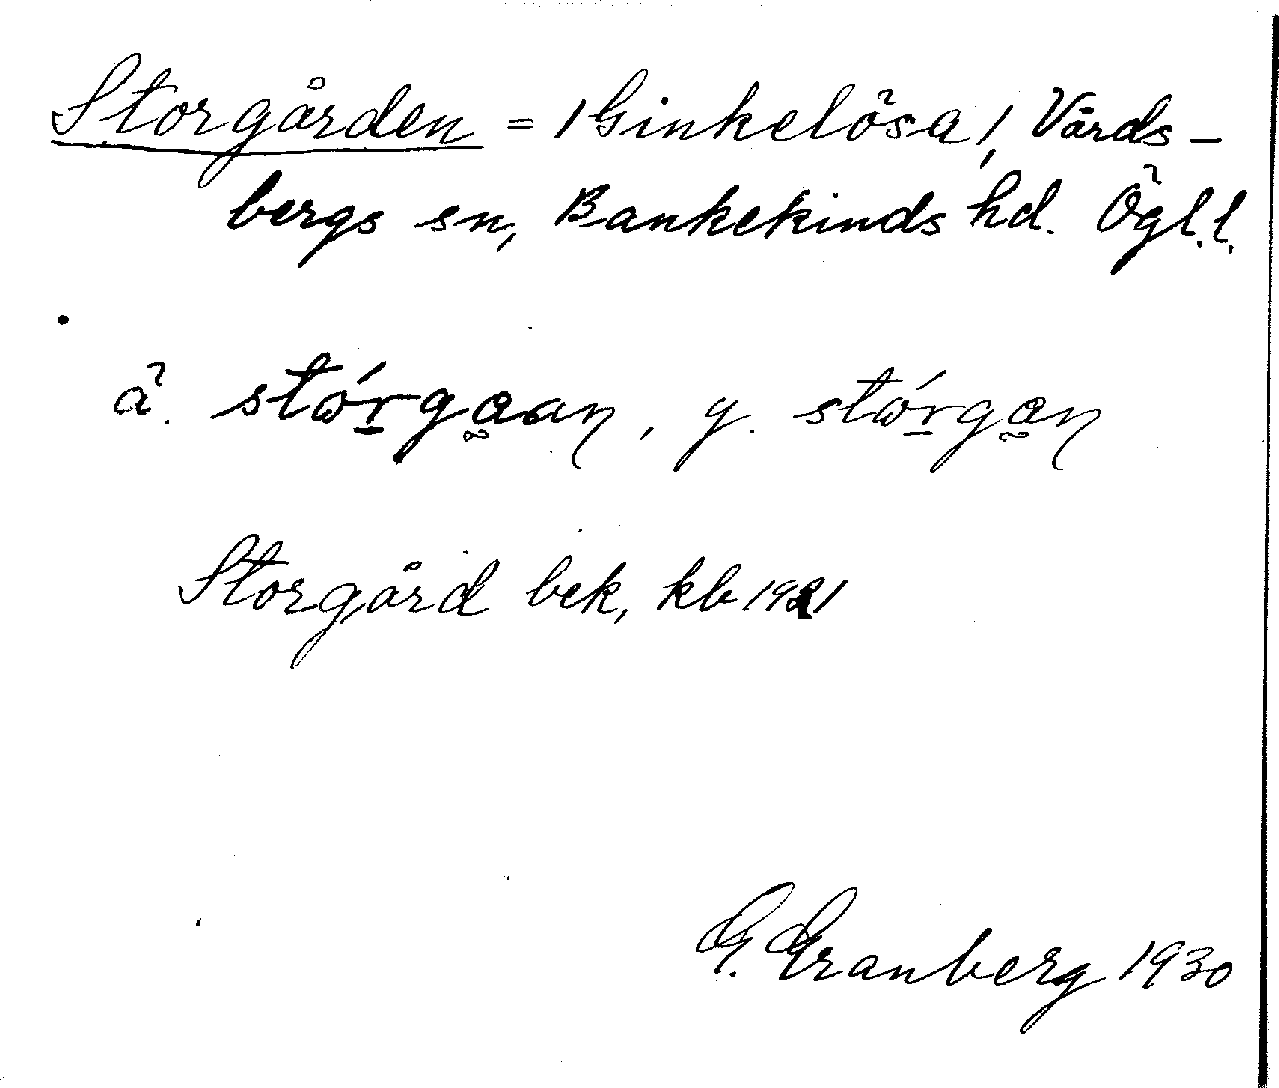 Storgården = /Ginkelösa/, Vårds-
bergs sn, Bankekinds hd. Ögl.l.
ä. stórgaan, y. stórgan
Storgård bek, kb 1921
G. Granberg 1930